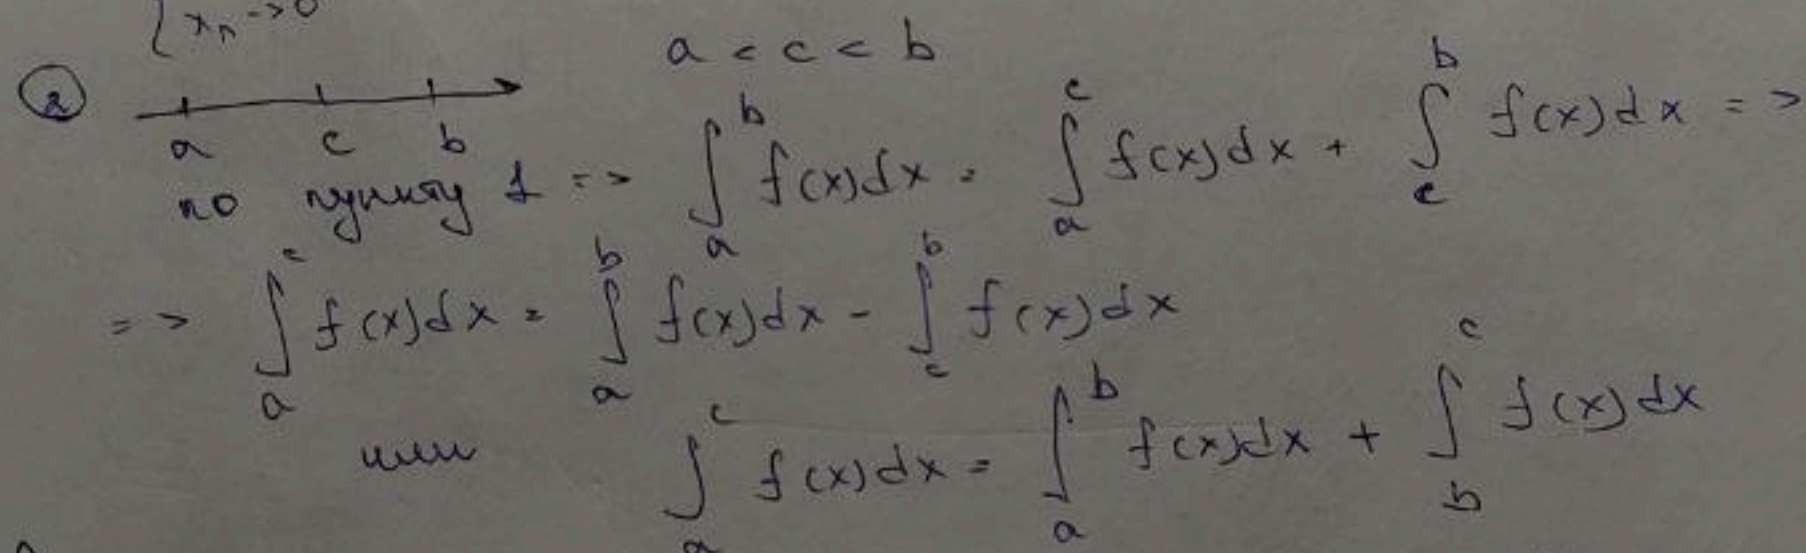 { xₙ -> 0
② a c b a < c < b
по пункту 1 => ∫ₐᵇ f(x)dx = ∫ₐᶜ f(x)dx + ∫꜀ᵇ f(x)dx =>
=> ∫ₐᶜ f(x)dx = ∫ₐᵇ f(x)dx - ∫꜀ᵇ f(x)dx
или ∫ₐᶜ f(x)dx = ∫ₐᵇ f(x)dx + ∫_bᶜ f(x)dx